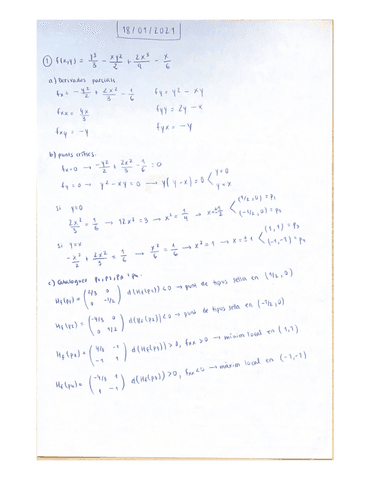 18/01/2021
① f(x,y) = y³/3 - xy²/2 + 2x³/9 - x/6
a) Derivades parcials
fx = -y²/2 + 2x²/3 - 1/6 fy = y² - xy
fxx = 4x/3 fyy = 2y - x
fxy = -y fyx = -y
b) punts crítics.
fx=0 → -y²/2 + 2x²/3 - 1/6 = 0
fy=0 → y² - xy = 0 → y(y-x) = 0 < y=0 y=x
si y=0
2x²/3 = 1/6 → 12x² = 3 → x² = 1/4 → x=±1/2 < (1/2, 0) = p₁ (-1/2, 0) = p₂
si y=x
-x²/2 + 2x²/3 = 1/6 → x²/6 = 1/6 → x² = 1 → x = ±1 < (1, 1) = p₃ (-1, -1) = p₄
c) Cataloguem p₁, p₂, p₃ i p₄.
Hf(p₁) = (2/3 0 0 -1/2) d(Hf(p₁)) < 0 → punt de tipus sella en (1/2, 0)
Hf(p₂) = (-4/3 0 0 1/2) d(Hf(p₂)) < 0 → punt de tipus sella en (-1/2, 0)
Hf(p₃) = (4/3 -1 -1 1) d(Hf(p₃)) > 0, fxx > 0 → mínim local en (1, 1)
Hf(p₄) = (-4/3 1 1 -1) d(Hf(p₄)) > 0, fxx < 0 → màxim local en (-1, -1)